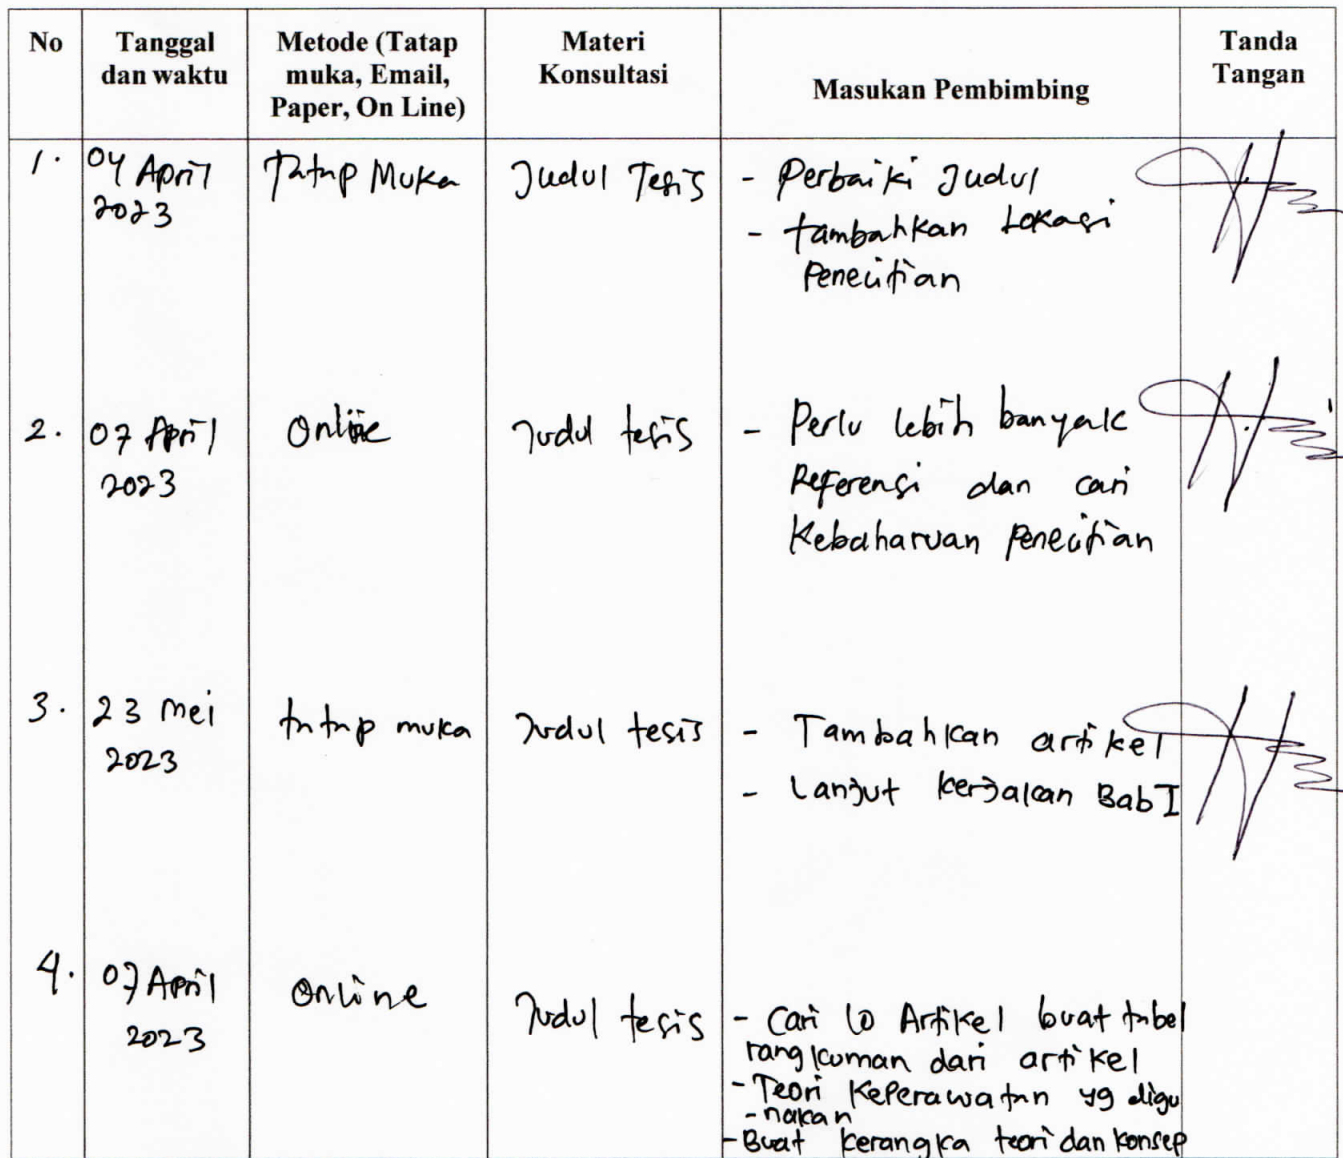 No
Tanggal
dan waktu
Metode (Tatap
muka, Email,
Paper, On Line)
Materi
Konsultasi
Masukan Pembimbing
Tanda
Tangan
1. 04 April
2023
Tatap Muka
Judul Tesis
- Perbaiki Judul
- tambahkan Lokasi
Penelitian
2. 07 April
2023
Online
Judul tesis
- Perlu lebih banyak
Referensi dan cari
Kebaharuan Penelitian
3. 23 Mei
2023
tatap muka
Judul tesis
- Tambahkan artikel
- Lanjut kerjakan Bab I
4. 07 April
2023
Online
Judul tesis
- Cari 10 Artikel buat tabel
rangkuman dari artikel
- Teori Keperawatan yg digu
- nakan
- Buat kerangka teori dan konsep